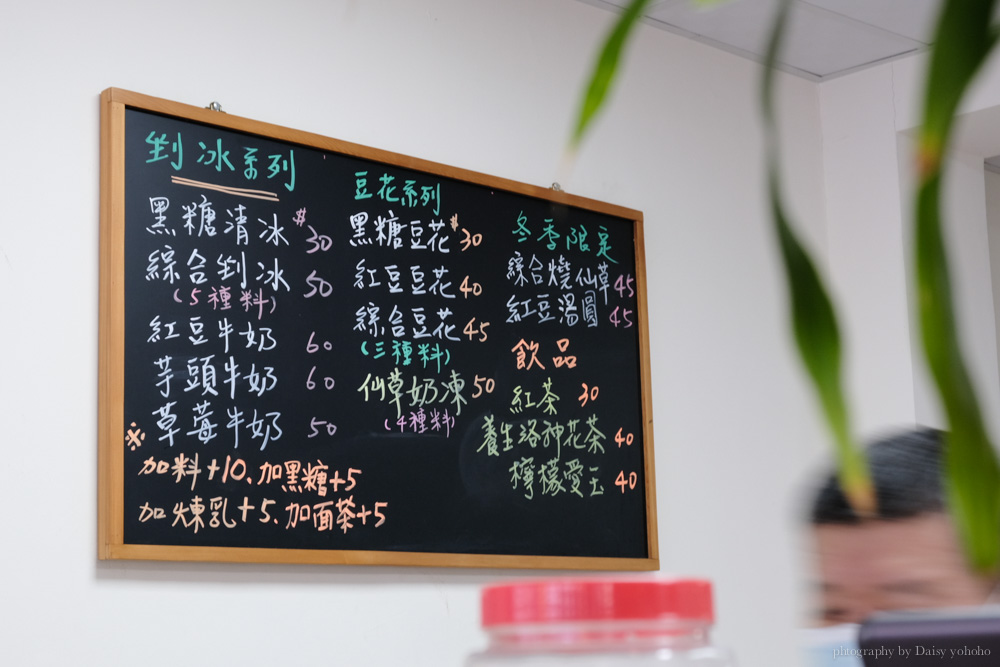 剉冰系列
黑糖清冰 $30
綜合剉冰 50
(5種料)
紅豆牛奶 60
芋頭牛奶 60
※草莓牛奶 50
加料+10、加黑糖+5
加煉乳+5、加面茶+5
豆花系列
黑糖豆花 $30
紅豆豆花 40
綜合豆花 45
(三種料)
仙草奶凍 50
(4種料)
冬季限定
綜合燒仙草 45
紅豆湯圓 45
飲品
紅茶 30
養生洛神花茶 40
檸檬愛玉 40
phtography by Daisy yohoho